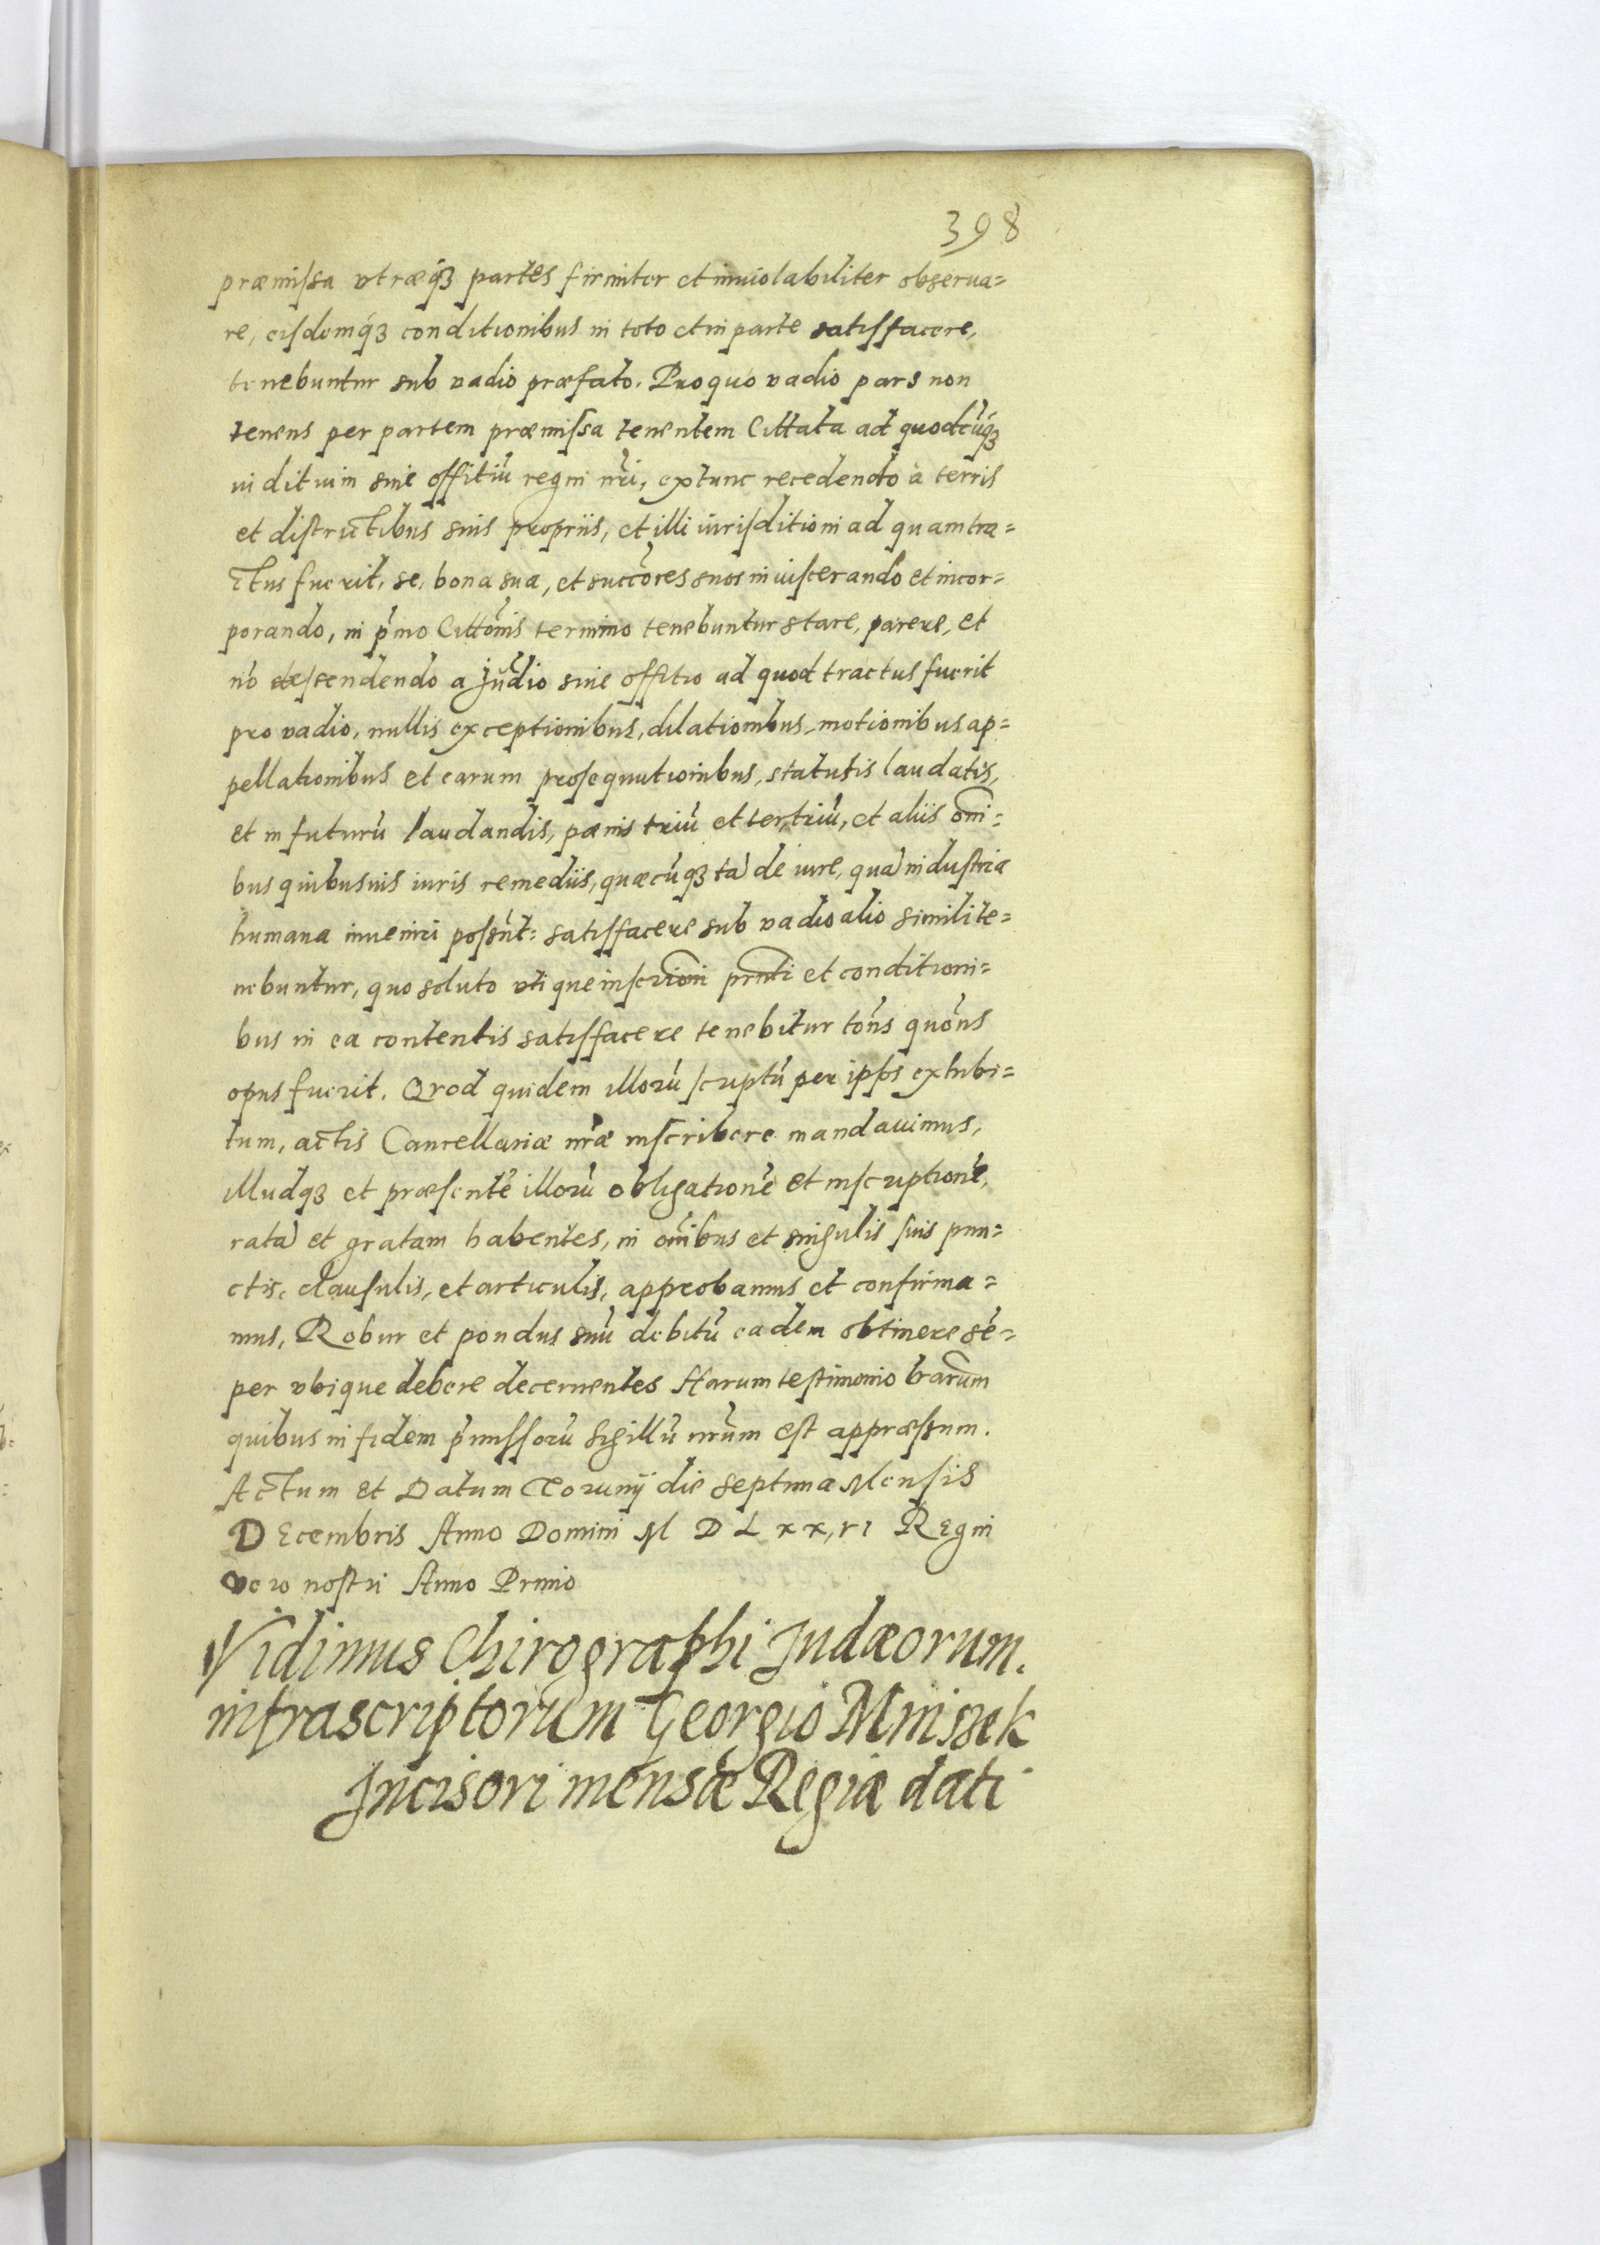 398
præmissa vtræq3 partes firmiter et inuiolabiliter obserua=
re, eisdemq́3 conditionibus in toto et in parte satisfacere,
tenebuntur sub vadio præfato. Pro quo vadio pars non
tenens per partem præmissa tenentem Cittata ad quodcũq3
iuditium siue offitiũ regni nr̃i, ex tunc recedendo à terris
et districtibus suis propriis, et illi iurisditioni ad quam tra=
ctus fuerit, se, bona sua, et succõres suos inuiscerando et incor=
porando, in p̃mo Cittõnis termino tenebuntur stare, parere, et
nõ descendendo a Jud̃io siue offitio ad quod tractus fuerit
pro vadio, nullis exceptionibus, dilationibus, motionibus ap=
pellationibus et earum prosequutionibus, statutis laudatis,
et in futurũ laudandis, pænis triũ et ter, triũ, et aliis om̃i=
bus quibusuis iuris remediis, quæcũq3 tã de iure, quã industria
humana inueniri possũt: satisfacere sub vadio alio simili te=
nebuntur, quo soluto vtique inscrioni pr̃nti et conditioni=
bus in ea contentis satisfacere tenebitur tõns quõns
opus fuerit. Quod quidem illorũ scriptũ per ip̃os exhibi=
tum, actis Cancellariæ nr̃æ inscribere mandauimus,
illudq3 et præsentẽ illorũ obligationẽ et inscriptionẽ,
ratã et gratam habentes, in om̃ibus et singulis suis pun=
ctis, clausulis, et articulis, approbamus et confirma=
mus, Robur et pondus suũ debitũ eadem obtinere sẽ=
per vbique debere decernentes Harum testimonio lr̃arum
quibus in fidem p̃missorũ Sigillũ nr̃um est appræssum.
Actum et Datum Torunij die septima Mensis
DEcembris Anno Domini M D L xx, vi Regni
vero nostri Anno Primo
Vidimus Chirographi Judæorum.
infrascriptorum Georgio Mnissek
Incisori mensæ Regiæ dati